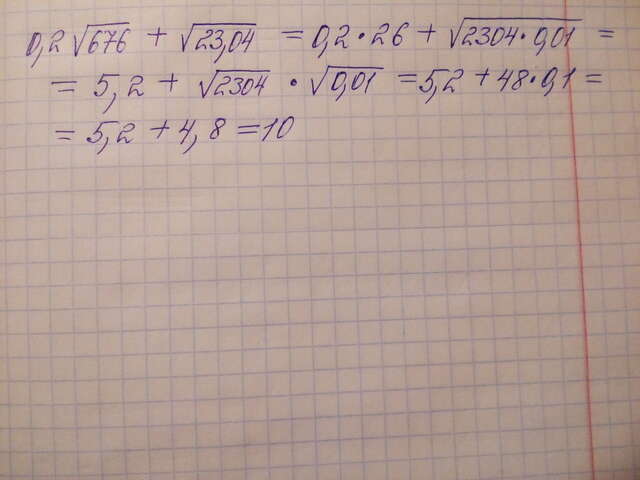 0,2√676 + √23,04 = 0,2·26 + √2304·0,01 =
= 5,2 + √2304 · √0,01 = 5,2 + 48·0,1 =
= 5,2 + 4,8 = 10